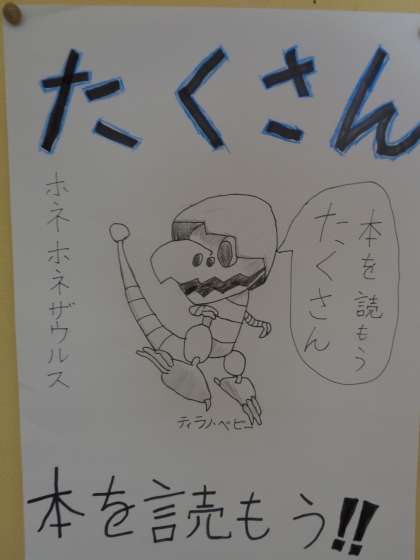 たくさん
ホネホネザウルス
本を読もう
たくさん
ティラノ・ベビー
本を読もう!!